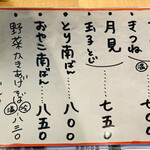 きつね 温 七〇〇
月見
玉子とじ 七五〇
とり南ばん 八〇〇
おやこ南ばん 八五〇
野菜かきあげそば 八三〇